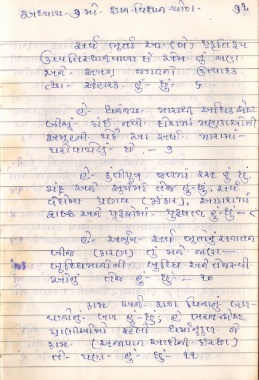 અધ્યાય - ૭ મો. જ્ઞાન-વિજ્ઞાન યોગ. ૭૨
સર્વ ભૂતો આ (બે) પ્રકૃતિરૂપ
ઉત્પત્તિસ્થાનવાળા છે એમ તું જાણ.
અને સમગ્ર જગતનો ઉત્પાદક
તથા સંહારક હું છું. ૬
હે ધનંજય મારાથી અધિક શ્રેષ્ઠ
બીજું કાંઈ નથી. દોરામાં મણકાઓની
સમૂહની પેઠે આ સર્વ મારામાં
પરોવાયેલું છે. - ૭
હે કુંતીપુત્ર જળમાં રસ હું છું.
ચંદ્ર અને સૂર્યમાં તેજ હું છું. સર્વ
વેદોમાં પ્રણવ (ૐકાર), આકાશમાં
શબ્દ અને પુરુષોમાં પુરુષત્વ હું છું - ૮
હે અર્જુન સર્વ ભૂતોનું સનાતન
બીજ (કારણ) તું મને જાણ.
બુદ્ધિમાનોની બુદ્ધિ અને તેજસ્વી
ઓનું તેજ હું છું - ૧૦
કામ અને રાગ વિનાનું બળ-
વાનોનું બળ હું છું; હે ભરતશ્રેષ્ઠ
પ્રાણીઓમાં રહેલો ધર્માનુકૂળ જે
કામ (અન્નપાન આદિની ઇચ્છા)
તે પણ હું છું - ૧૧